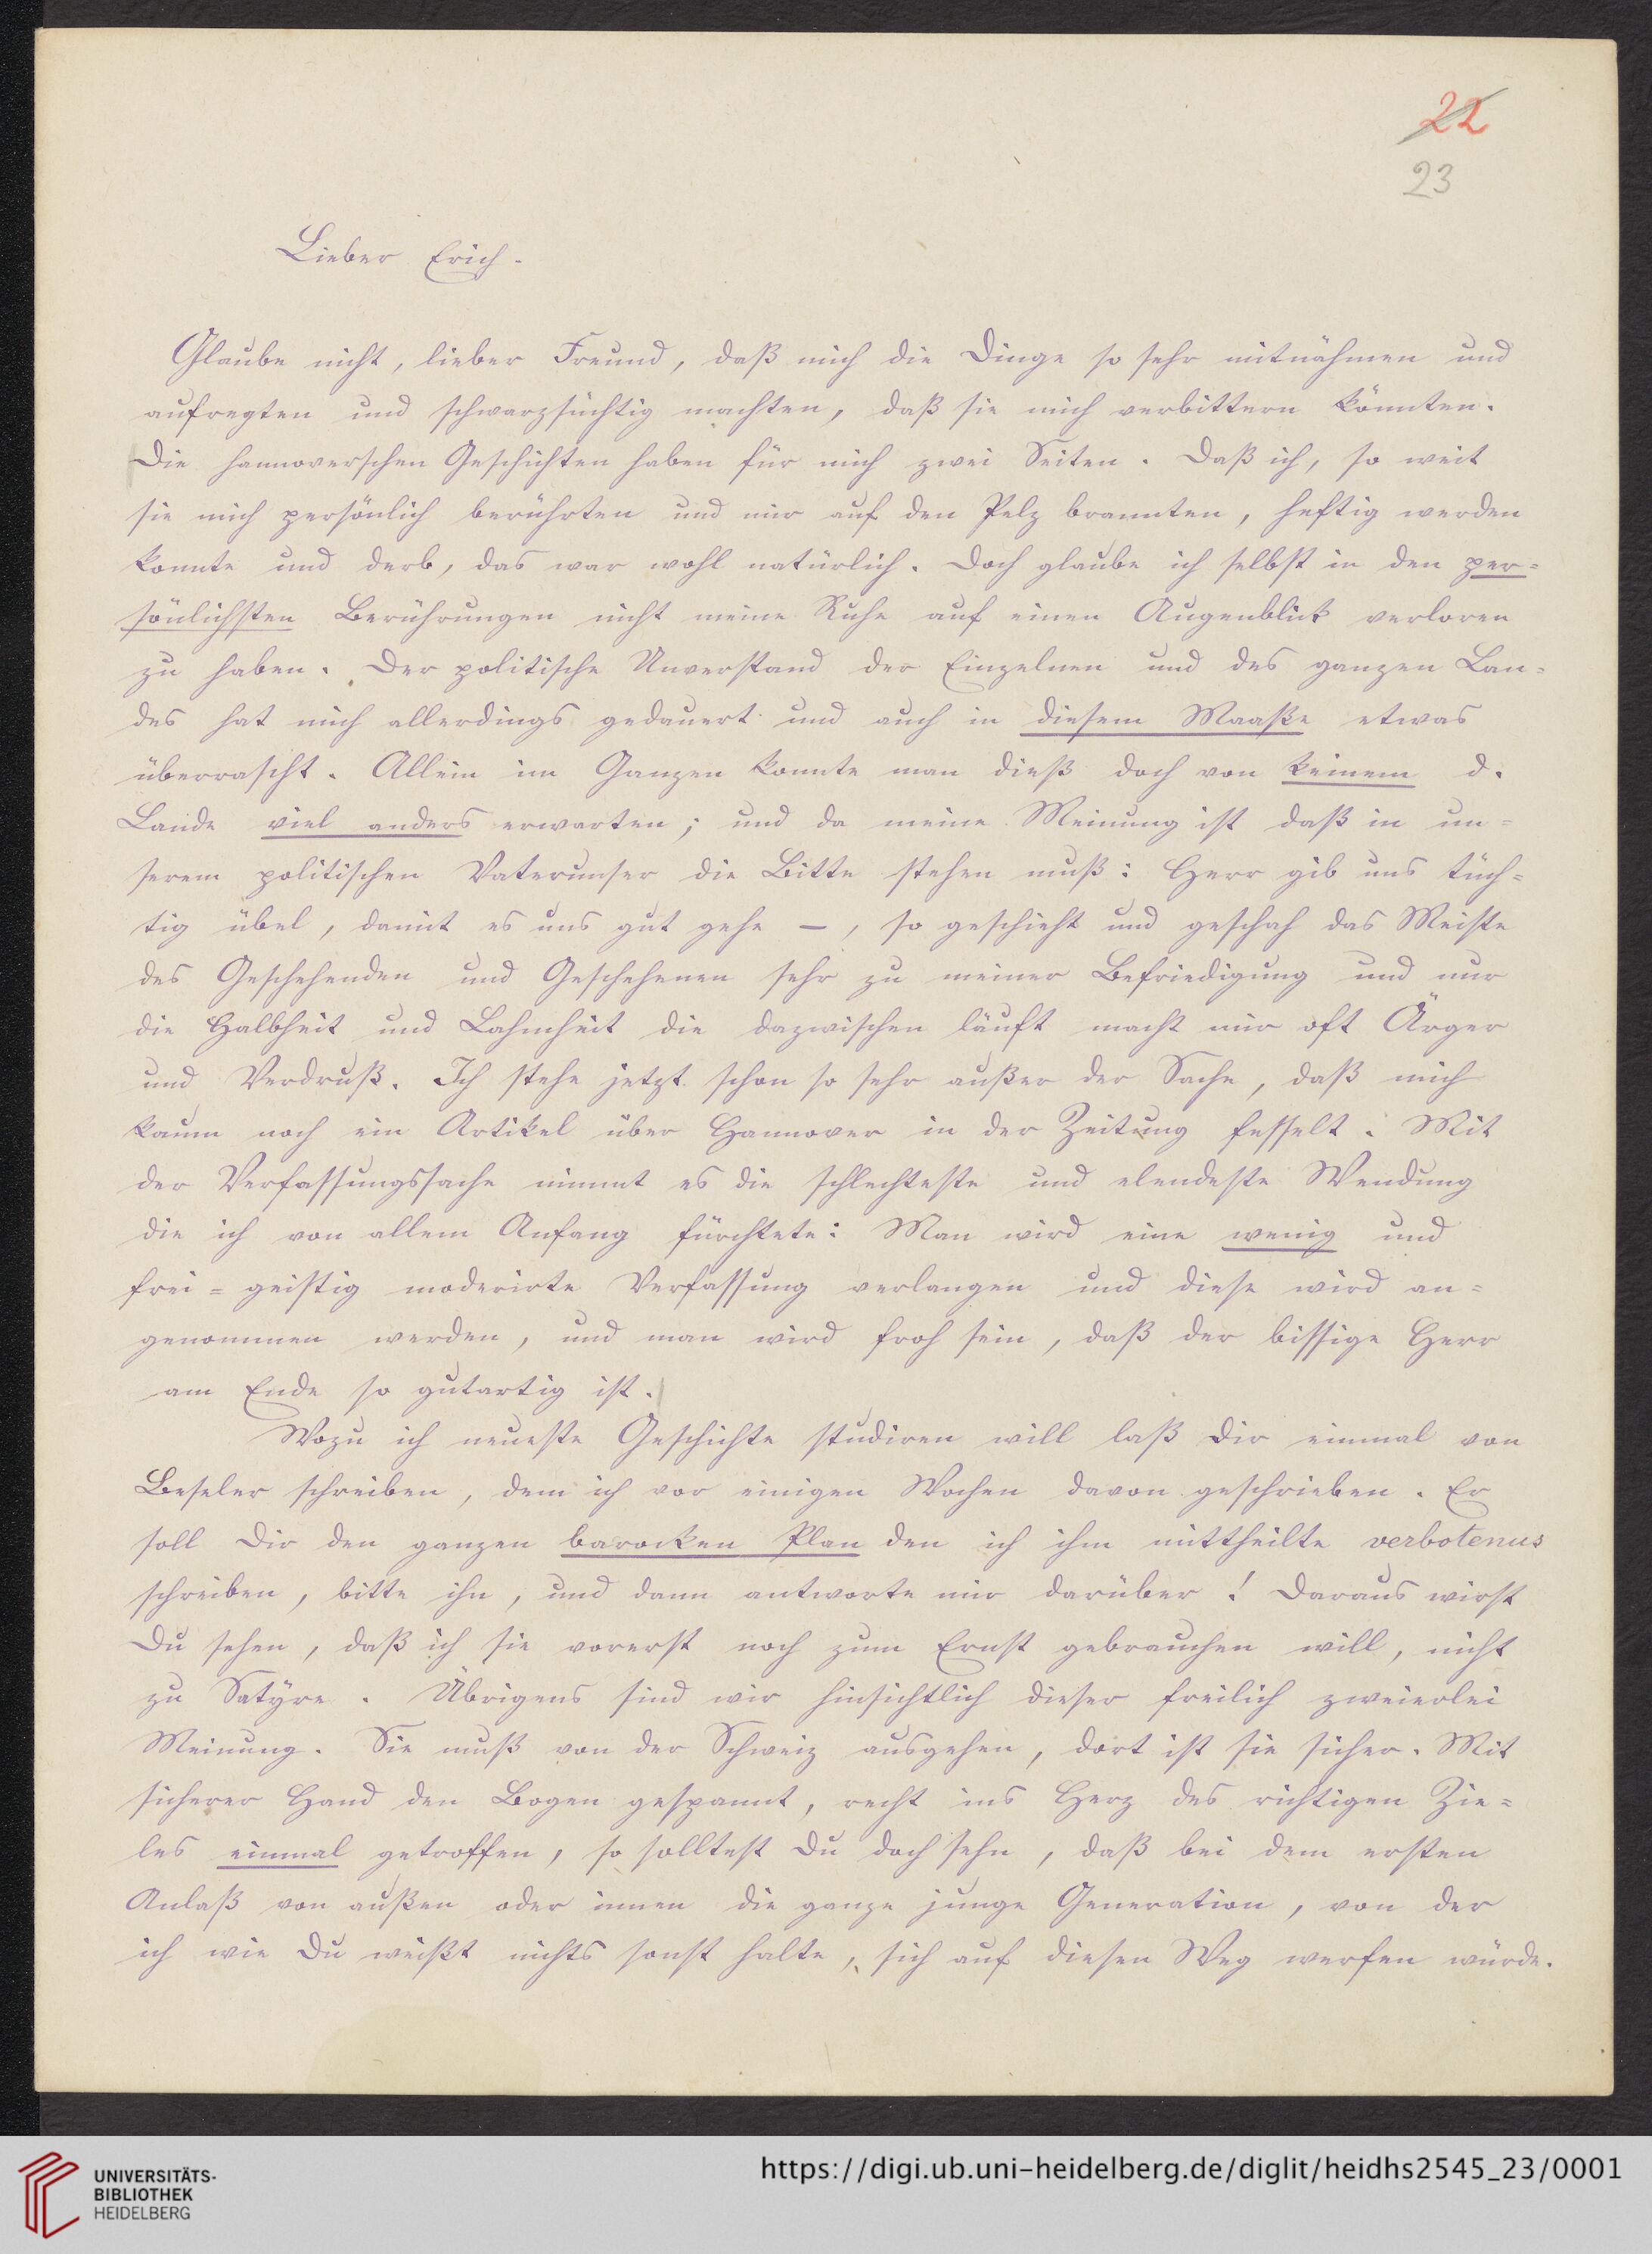 22
23
Lieber Erich.
Glaube nicht, lieber Freund, daß mich die Dinge so sehr mitnähmen und
aufregten und schwarzsüchtig machten, daß sie mich verbittern könnten.
Die hannoverschen Geschichten haben für mich zwei Seiten. Daß ich, so weit
sie mich persönlich berührten und mir auf den Pelz brannten, heftig werden
konnte und derb, das war wohl natürlich. Doch glaube ich selbst in den per-
sönlichsten Berührungen nicht meine Ruhe auf einen Augenblick verloren
zu haben. Der politische Unverstand der Einzelnen und des ganzen Lan-
des hat mich allerdings gedauert und auch in diesem Maaße etwas
überrascht. Allein im Ganzen konnte man dieß doch von keinem d.
Lande viel anders erwarten; und da meine Meinung ist daß in un-
serem politischen Vaterunser die Bitte stehen muß: Herr gib uns tüch-
tig übel, damit es uns gut gehe –, so geschieht und geschah das Meiste
des Geschehenden und Geschehenen sehr zu meiner Befriedigung und nur
die Halbheit und Lahmheit die dazwischen läuft macht mir oft Ärger
und Verdruß. Ich stehe jetzt schon so sehr außer der Sache, daß mich
kaum noch ein Artikel über Hannover in der Zeitung fesselt. Mit
der Verfassungssache nimmt es die schlechteste und elendeste Wendung
die ich von allem Anfang fürchtete: Man wird eine wenig und
frei-geistig moderirte Verfassung verlangen und diese wird an-
genommen werden, und man wird froh sein, daß der bissige Herr
am Ende so gutartig ist.
Wozu ich neueste Geschichte studiren will laß Dir einmal von
Beseler schreiben, dem ich vor einigen Wochen davon geschrieben. Er
soll Dir den ganzen barocken Plan den ich ihm mittheilte verbotenus
schreiben, bitte ihn, und dann antworte mir darüber! Daraus wirst
Du sehen, daß ich sie vorerst noch zum Ernst gebrauchen will, nicht
zu Satyre. Übrigens sind wir hinsichtlich dieser freilich zweierlei
Meinung. Sie muß von der Schweiz ausgehen, dort ist sie sicher. Mit
sicherer Hand den Bogen gespannt, recht ins Herz des richtigen Zie-
les einmal getroffen, so solltest Du doch sehn, daß bei dem ersten
Anlaß von außen oder innen die ganze junge Generation, von der
ich wie Du weißt nichts sonst halte, sich auf diesen Weg werfen würde.
UNIVERSITÄTS-
BIBLIOTHEK
HEIDELBERG
https://digi.ub.uni-heidelberg.de/diglit/heidhs2545_23/0001